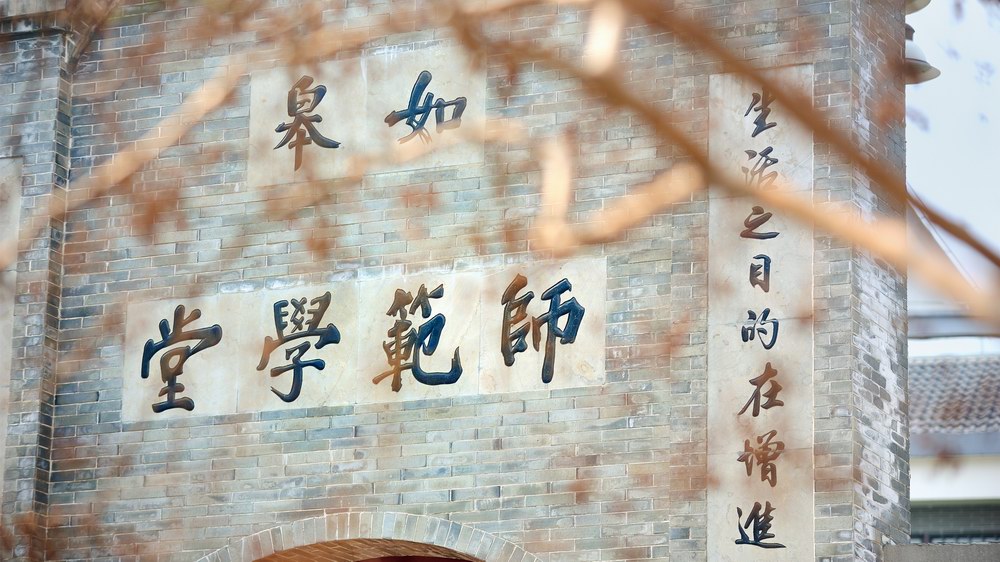 如皋
師範學堂
生活之目的在增進